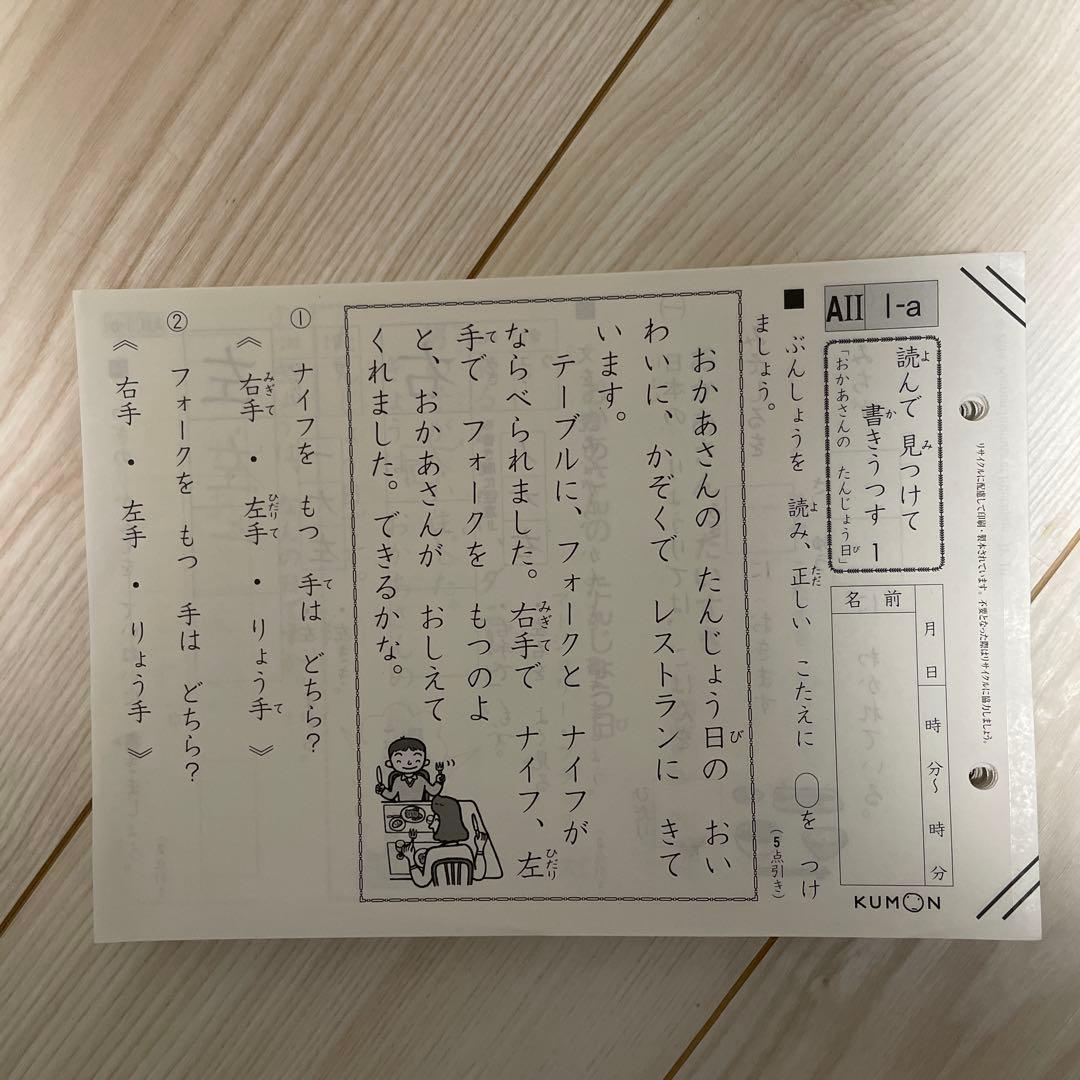 AII 1-a
読んで 見つけて
書きうつす 1
「おかあさんの たんじょう日」
月 日 時 分〜 時 分
名前
KUMON
リサイクルに配慮して印刷・製本されています。不要となった際はリサイクルに協力しましょう。
■ ぶんしょうを 読み、正しい こたえに ◯を つけ
ましょう。
(5点引き)
おかあさんの たんじょう日の おい
わいに、かぞくで レストランに きて
います。
テーブルに、フォークと ナイフが
ならべられました。右手で ナイフ、左
手で フォークを もつのよ
と、おかあさんが おしえて
くれました。できるかな。
① ナイフを もつ 手は どちら?
《 右手 ・ 左手 ・ りょう手 》
② フォークを もつ 手は どちら?
《 右手 ・ 左手 ・ りょう手 》